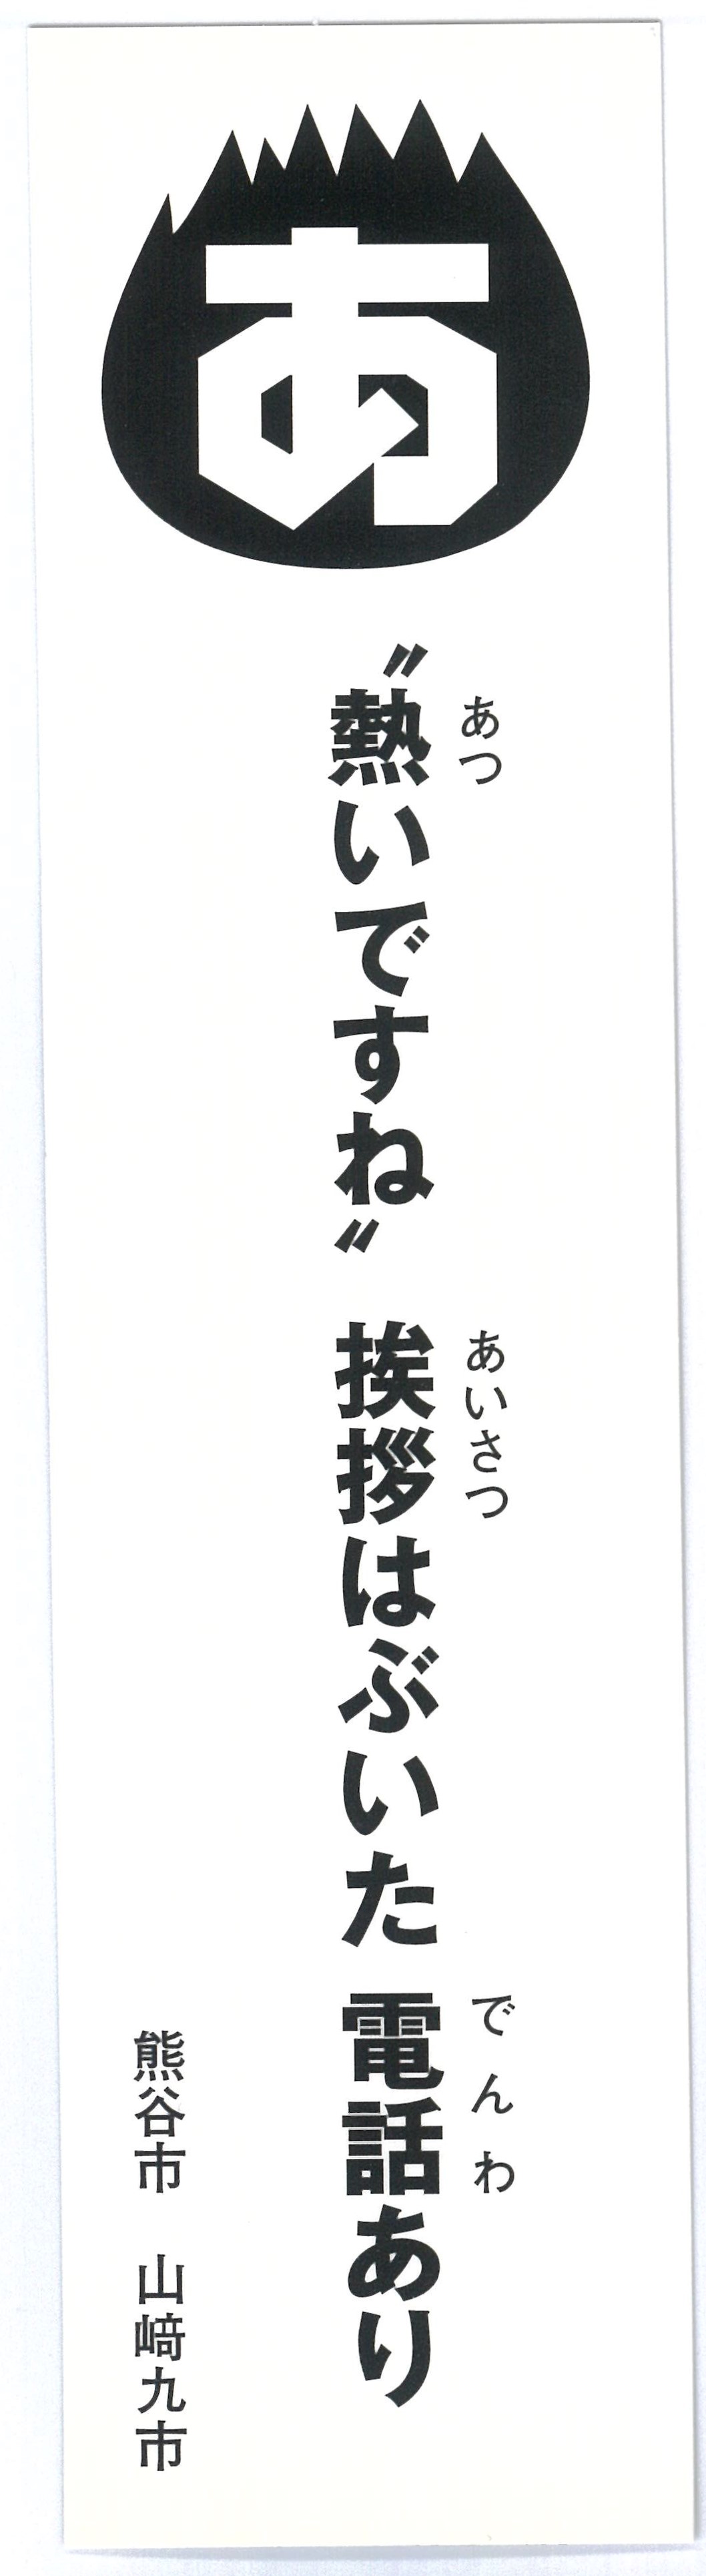 あ
〝熱いですね〟 挨拶はぶいた 電話あり
あつ
あいさつ
でんわ
熊谷市 山﨑九市